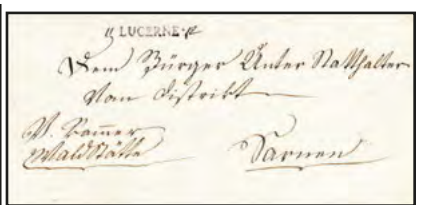 LUCERNE
Dem Bürger Unter Statthalter
Vom Distrikt
Waldstätte
Sarnen